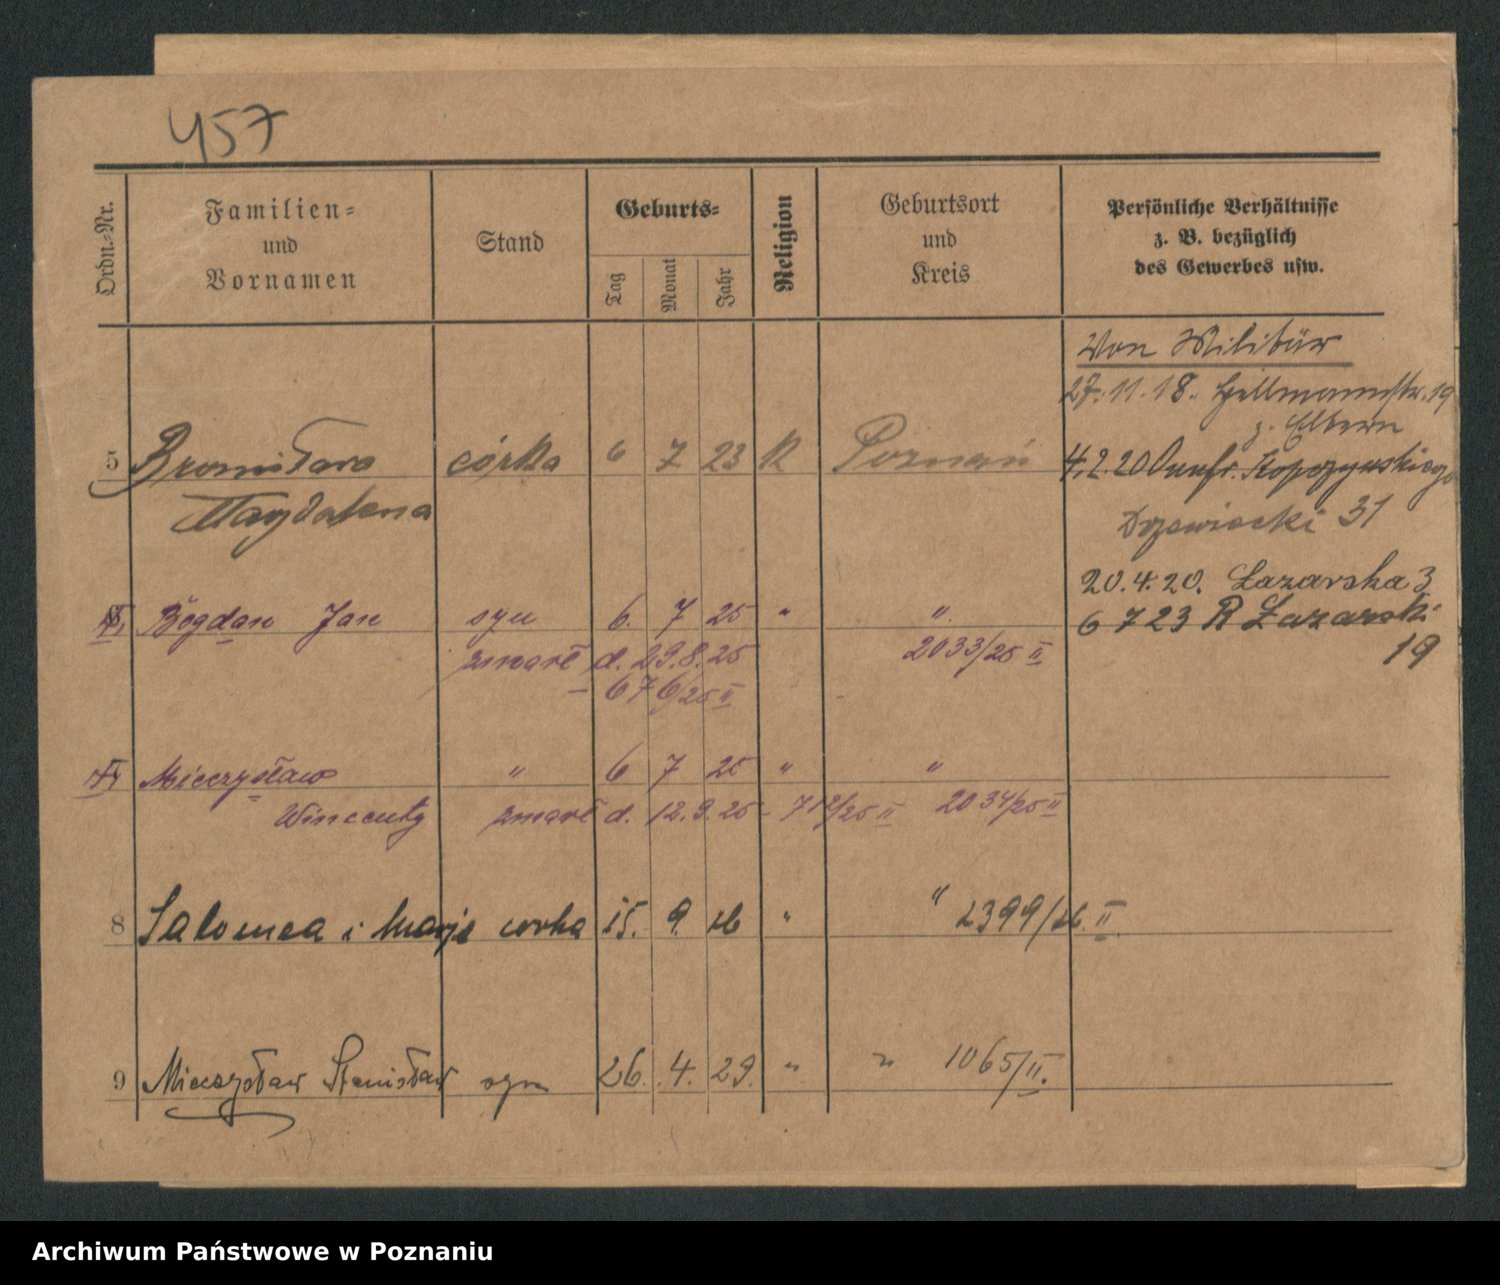 457
Ordn.-Nr.
Familien-
und
Vornamen
Stand
Geburts-
Tag
Monat
Jahr
Religion
Geburtsort
und
Kreis
Persönliche Verhältnisse
z. B. bezüglich
des Gewerbes usw.
Von Militär
27.11.18. Hillmannstr. 19
z. Eltern
5 Bronisława córka 6 7 23 R Poznań
4.2.20 Kopczynskiego
Magdalena
Drzewiecki 31
20.4.20. Łazarska 3
Bogdan Jan syn 6. 7 25 " "
6 7 23 R Łazarski
19
zmarł d. 29.8.25 2033/25 II
– 676/25 II
Mieczysław " 6 7 25 " "
Wincenty zmarł d. 12.9.25 – 712/25 II 2034/25 II
8 Salomea i Marja corka 15. 9. 26 " " 2399/26. II.
9 Mieczysław Stanisław syn 26. 4. 29. " " 1065/II.
Archiwum Państwowe w Poznaniu